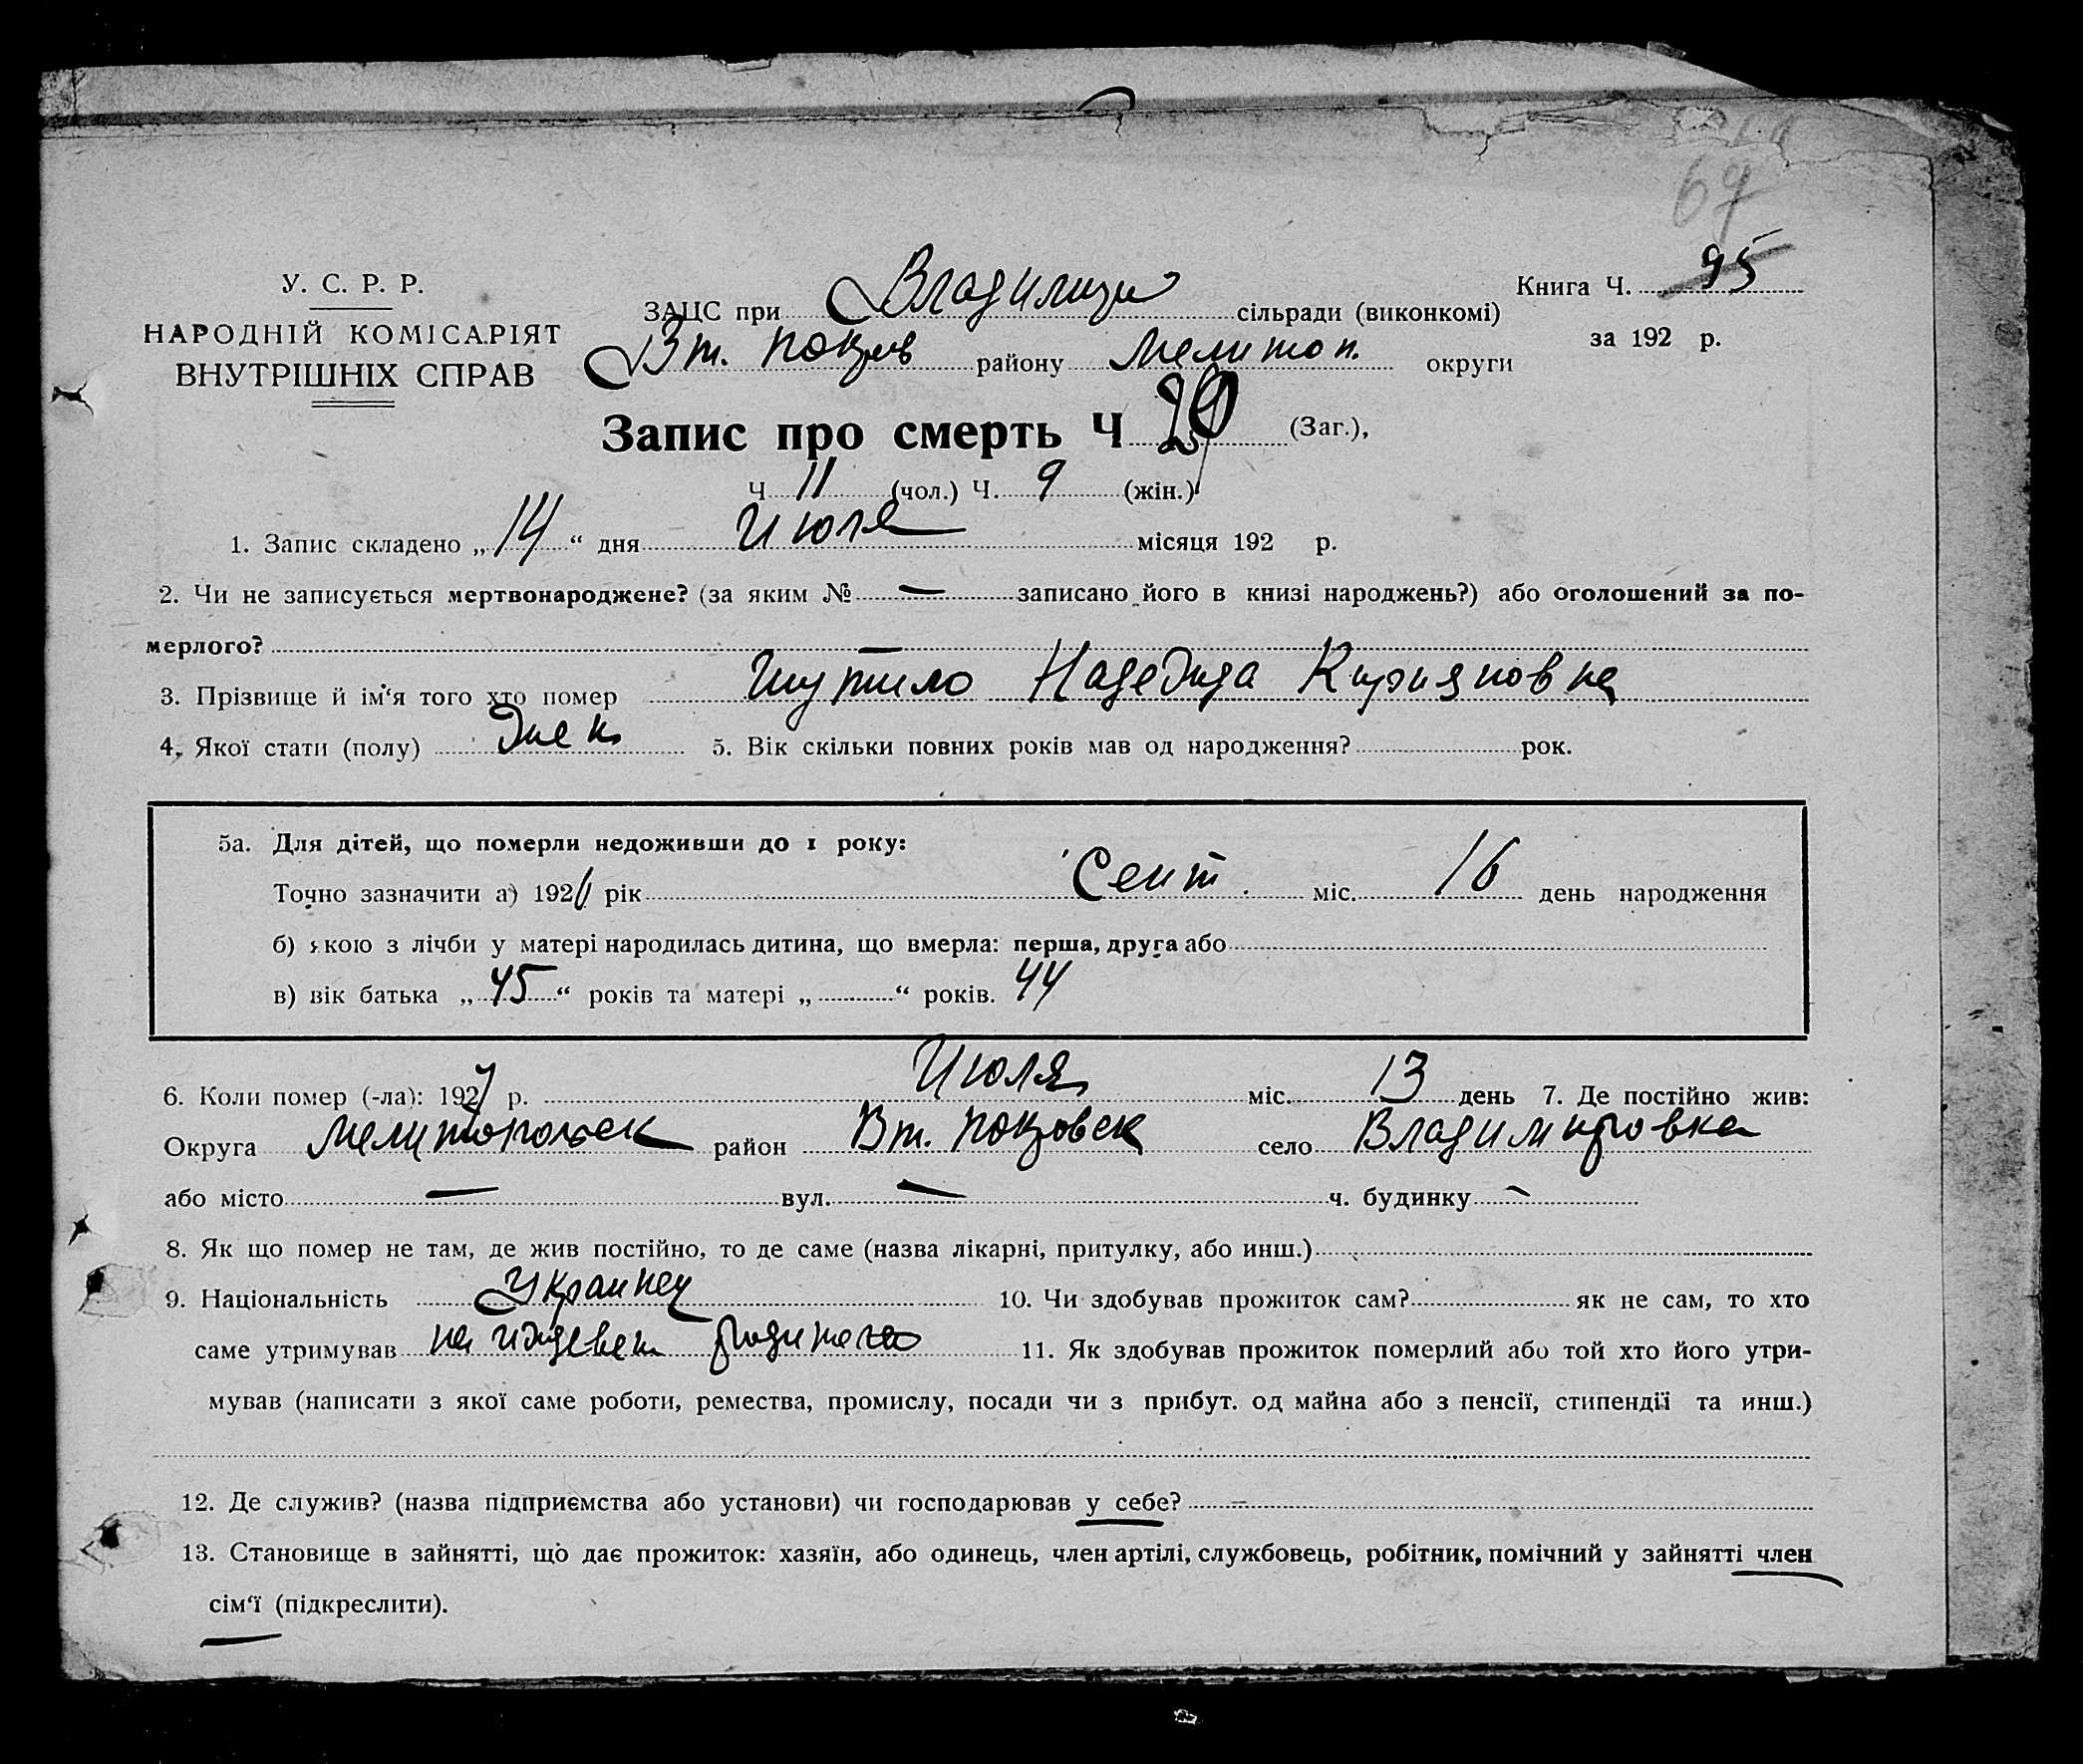 69
У. С. Р. Р.
НАРОДНІЙ КОМІСАРІЯТ
ВНУТРІШНІХ СПРАВ
Книга Ч. 95
за 192 р.
ЗАЦС при Владимир сільради (виконкомі)
Вт. Покров району Мелитоп. округи
Запис про смерть Ч 20 (Заг.),
Ч 11 (чол.) Ч. 9 (жін.)
1. Запис складено „14“ дня Июля місяця 192 р.
2. Чи не записується мертвонароджене? (за яким № — записано його в книзі народжень?) або оголошений за по-
мерлого? —
3. Прізвище й ім‘я того хто помер Шутило Надежда Кирияновна
4. Якої стати (полу) Жен 5. Вік скільки повних років мав од народження? рок.
5а. Для дітей, що померли недоживши до 1 року:
Точно зазначити а) 1926 рік Сент. міс. 16 день народження
б) якою з лічби у матері народилась дитина, що вмерла: перша, друга або
в) вік батька „45“ років та матері „ “ років. 44
6. Коли помер (-ла): 1927 р. Июля міс. 13 день 7. Де постійно жив:
Округа Мелитопольск район Вт. Покровск село Владимировка
або місто — вул. — ч. будинку —
8. Як що помер не там, де жив постійно, то де саме (назва лікарні, притулку, або инш.)
9. Національність Украинец 10. Чи здобував прожиток сам? як не сам, то хто
саме утримував на иждевен родителей 11. Як здобував прожиток померлий або той хто його утри-
мував (написати з якої саме роботи, ремества, промислу, посади чи з прибут. од майна або з пенсії, стипендії та инш.)
12. Де служив? (назва підприємства або установи) чи господарював у себе?
13. Становище в зайнятті, що дає прожиток: хазяїн, або одинець, член артілі, службовець, робітник, помічний у зайнятті член
сім‘ї (підкреслити).